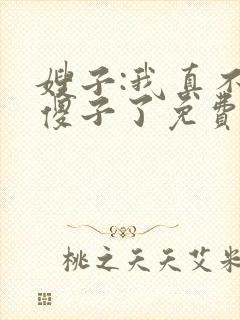 嫂子:我真不
傻子了免费
桃之夭夭艾米